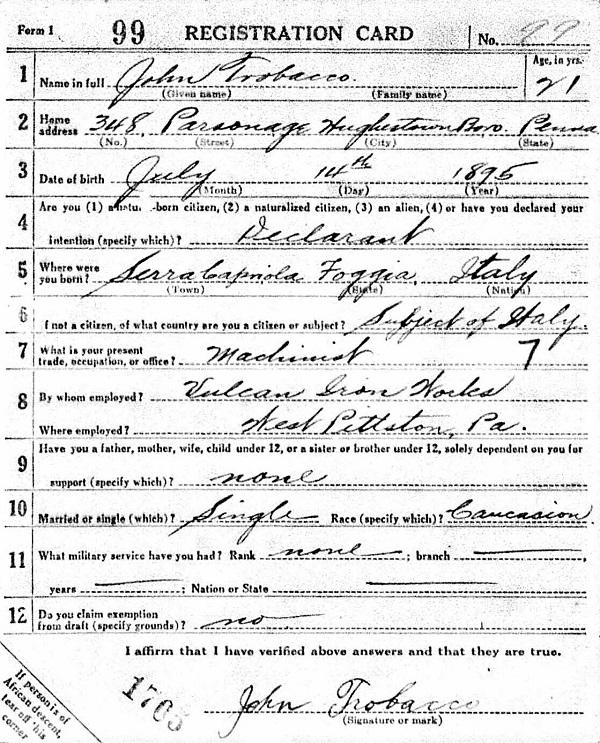 Form 1 99 REGISTRATION CARD No. 99
1 Name in full John Trobacco. Age, in yrs. 21
(Given name) (Family name)
2 Home address 348, Parsonage Hughestown Boro. Penna
(No.) (Street) (City) (State)
3 Date of birth July 14th 1895
(Month) (Day) (Year)
4 Are you (1) a natu -born citizen, (2) a naturalized citizen, (3) an alien, (4) or have you declared your
intention (specify which)? Declarant
5 Where were you born? SerraCapriola Foggia, Italy
(Town) (State) (Nation)
6 f not a citizen, of what country are you a citizen or subject? Subject of Italy.
7 What is your present trade, occupation, or office? Machinist 7
8 By whom employed? Vulcan Iron Works
Where employed? West Pittston, Pa.
9 Have you a father, mother, wife, child under 12, or a sister or brother under 12, solely dependent on you for
support (specify which)? none
10 Married or single (which)? Single Race (specify which)? Caucasion
11 What military service have you had? Rank none ; branch ,
years ; Nation or State
12 Do you claim exemption from draft (specify grounds)? no
I affirm that I have verified above answers and that they are true.
1765
John Trobacco
(Signature or mark)
If person is of
African descent,
tear off this
corner